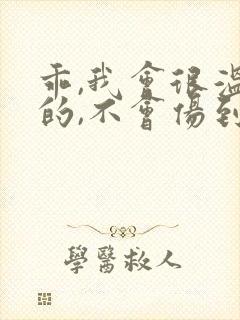 乖,我會很溫
的,不會傷到
學醫救人